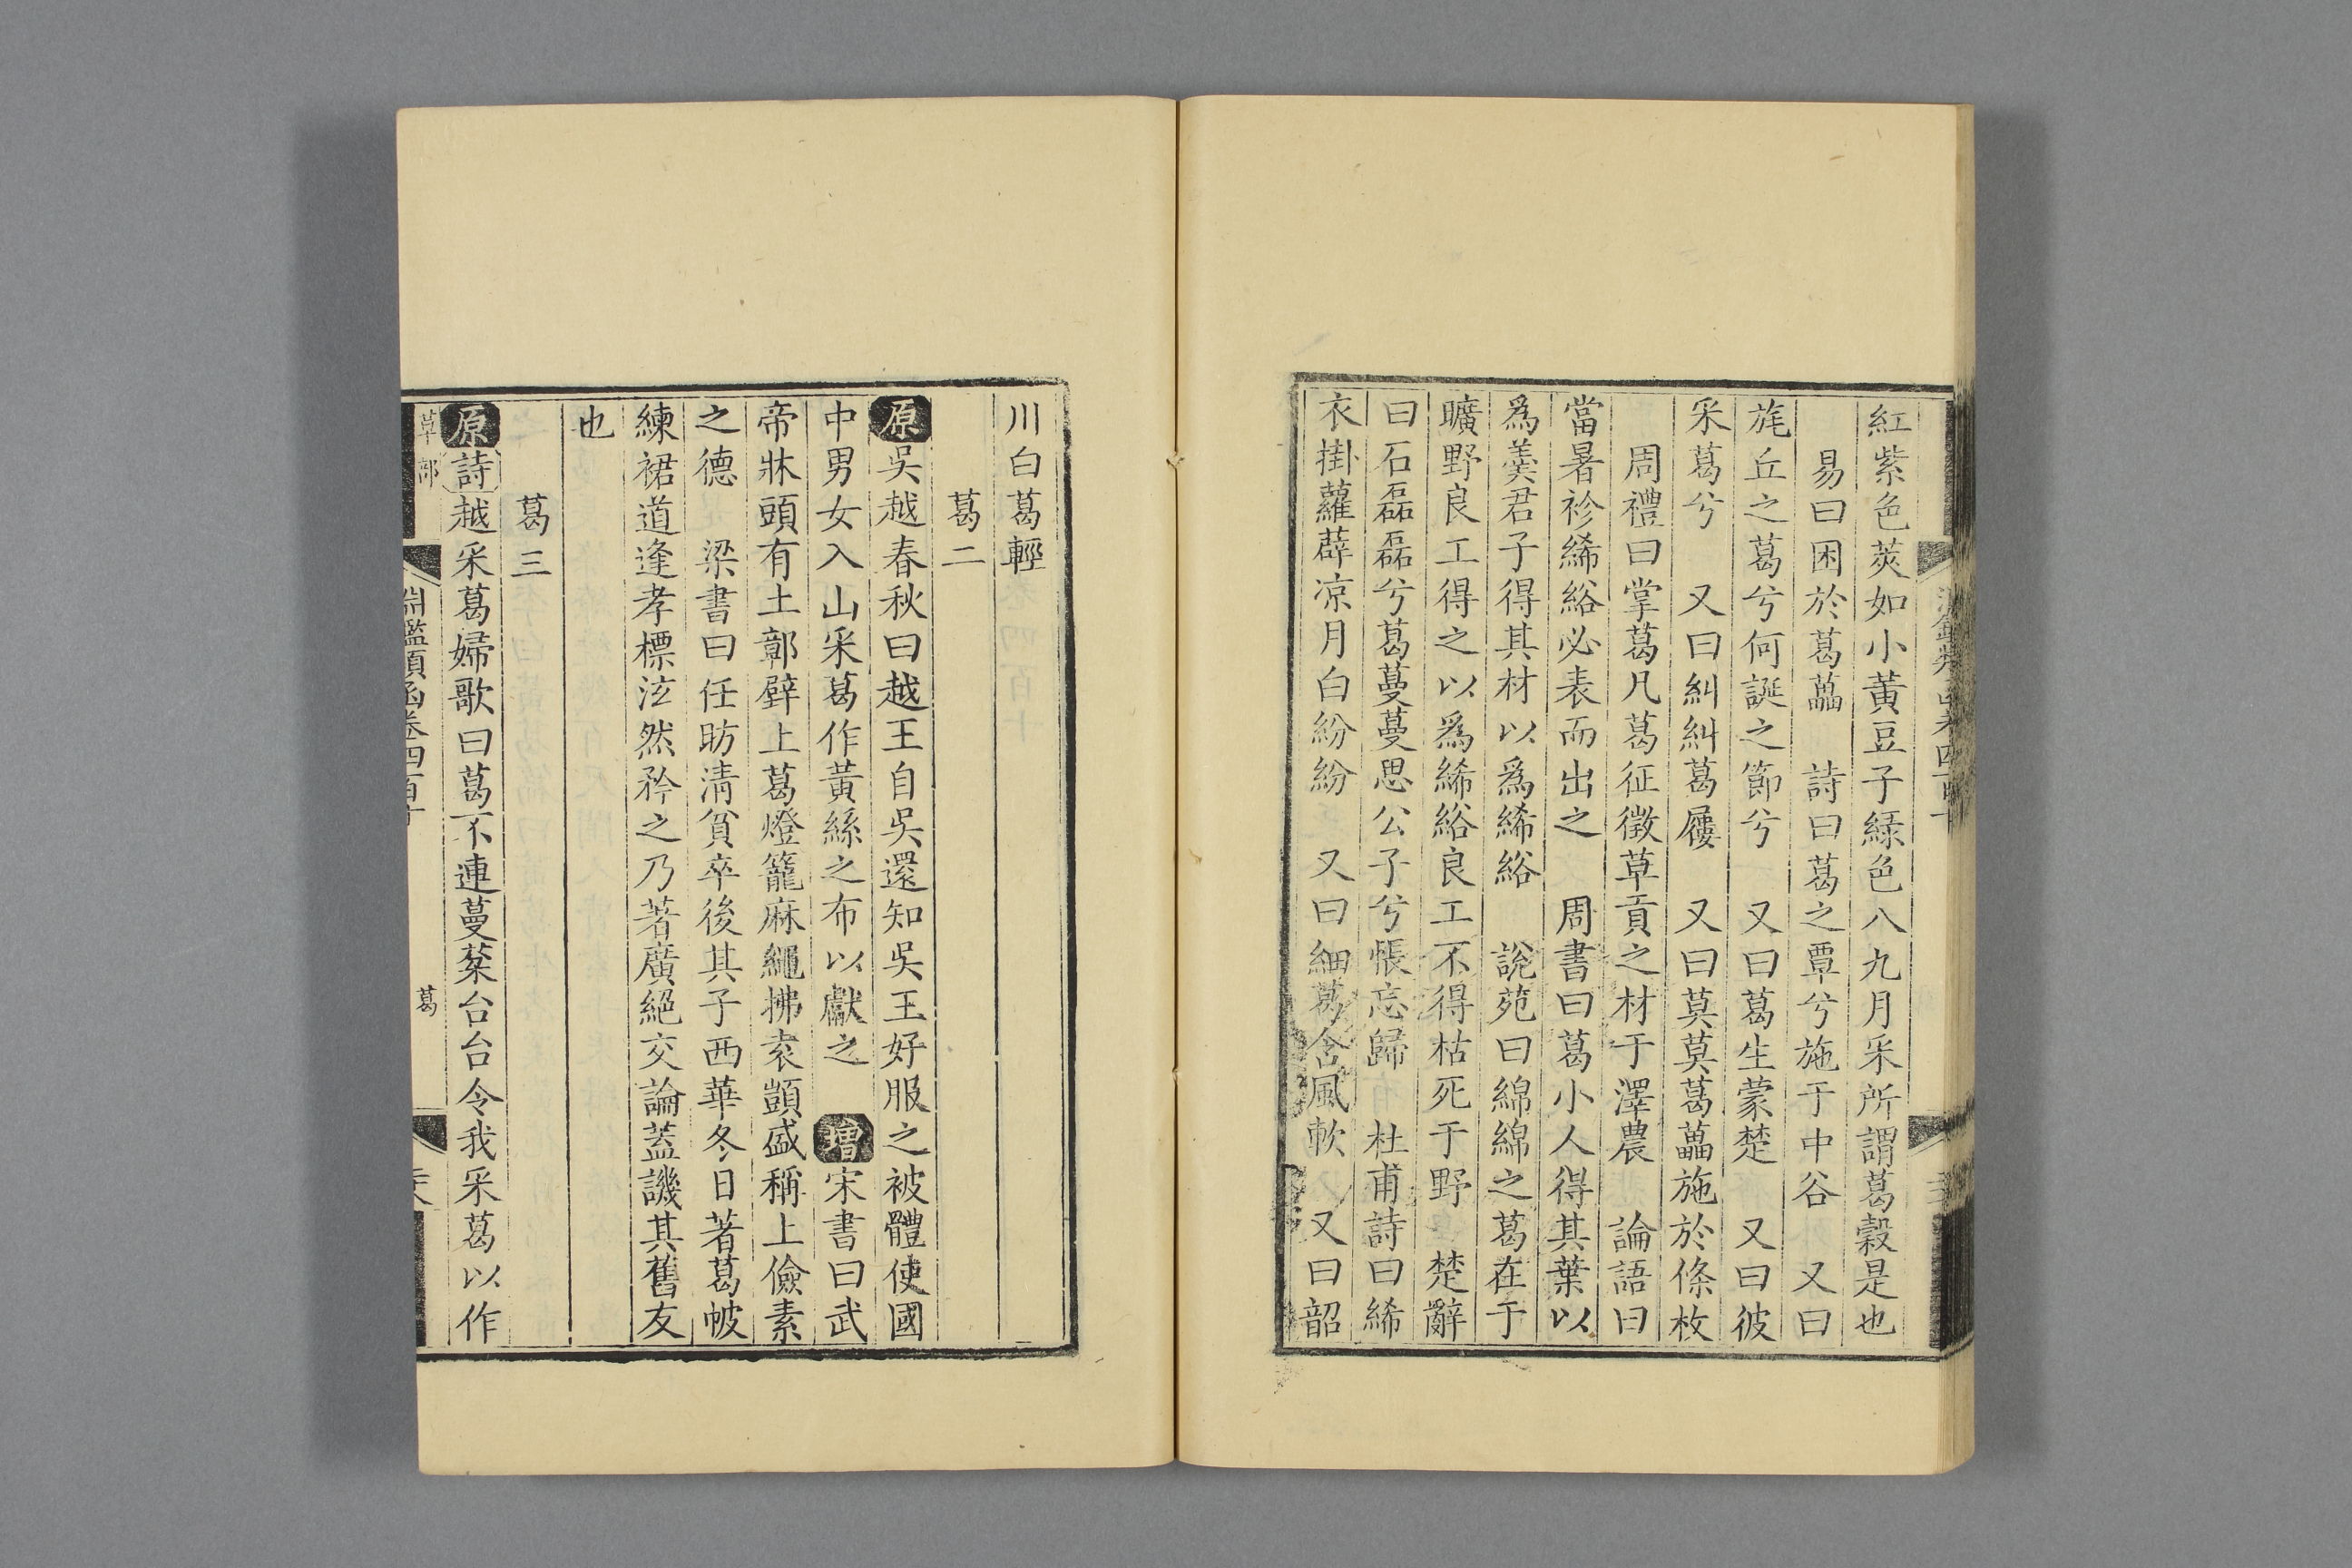 紅紫色莢如小黃豆子綠色八九月采所謂葛穀是也
易曰困於葛藟　詩曰葛之覃兮施于中谷　又曰
旄丘之葛兮何誕之節兮　又曰葛生蒙楚　又曰彼
采葛兮　又曰糾糾葛屨　又曰莫莫葛藟施於條枚
周禮曰掌葛凡葛征徵草貢之材于澤農　論語曰
當暑袗絺綌必表而出之　周書曰葛小人得其葉以
爲羹君子得其材以爲絺綌　說苑曰綿綿之葛在于
曠野良工得之以爲絺綌良工不得枯死于野　楚辭
曰石磊磊兮葛蔓蔓思公子兮悵忘歸　杜甫詩曰絺
衣掛蘿薜凉月白紛紛　又曰細葛含風軟　又曰韶
川白葛輕
葛二
原吳越春秋曰越王自吳還知吳王好服之被體使國
中男女入山采葛作黃絲之布以獻之　增宋書曰武
帝牀頭有土鄣壁上葛燈籠麻繩拂袁顗盛稱上儉素
之德　梁書曰任昉清貧卒後其子西華冬日著葛帔
練裙道逢孝標泫然矜之乃著廣絕交論蓋譏其舊友
也
葛三
原詩越采葛婦歌曰葛不連蔓棻台台令我采葛以作
草部
淵鑑類函卷四百十
葛